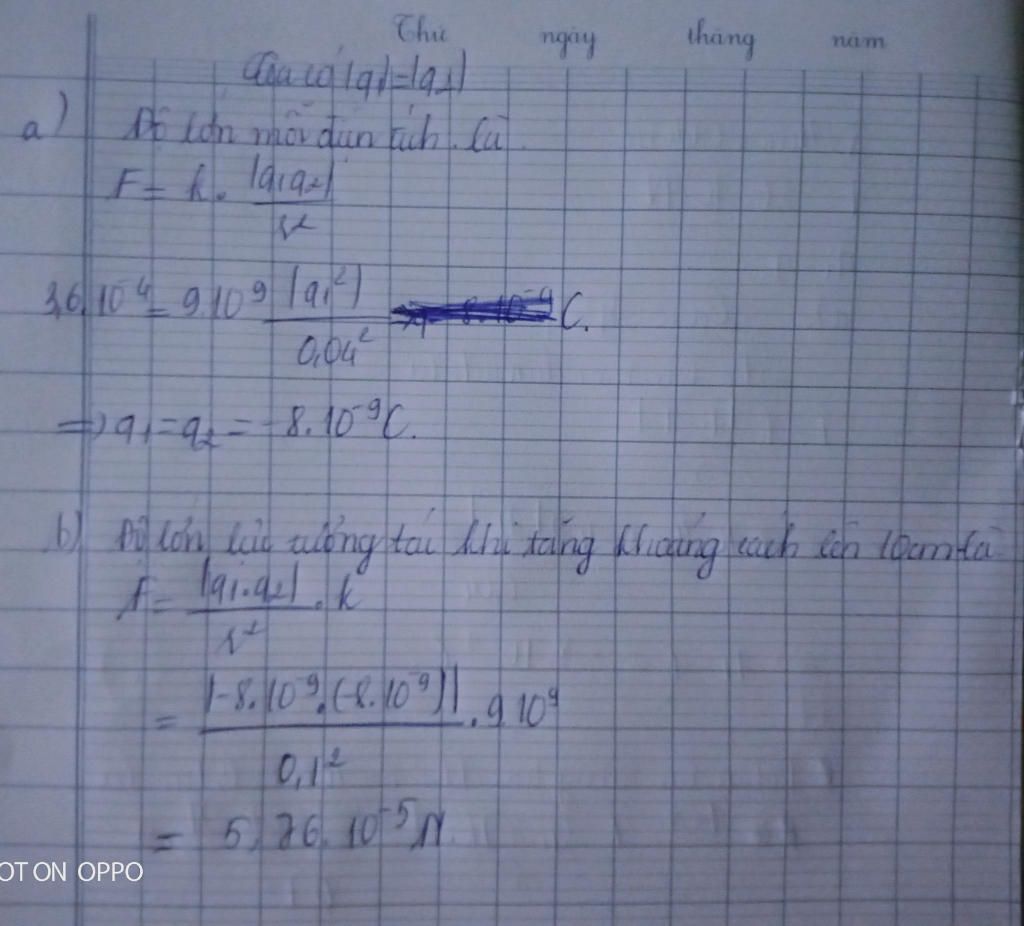 Thứ ngày tháng năm
Ta có |q₁|=|q₂|
a) Độ lớn mỗi điện tích là
F = k. |q₁q₂|
r²
3,6.10⁻⁴ = 9.10⁹ |q₁²|
0,04²
C.
=> q₁=q₂ = -8.10⁻⁹C.
b) Độ lớn lực tương tác khi tăng khoảng cách lên 10cm là
F = |q₁.q₂| . k
r²
= |-8.10⁻⁹.(-8.10⁻⁹)| . 9.10⁹
0,1²
= 5,76.10⁻⁵N.
OT ON OPPO